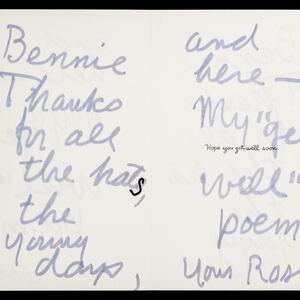 Bennie
Thanks
for all
the hats,
the
young
days,
and
here —
My "ge
Hope you get well soon
well"
poem
Your Ros